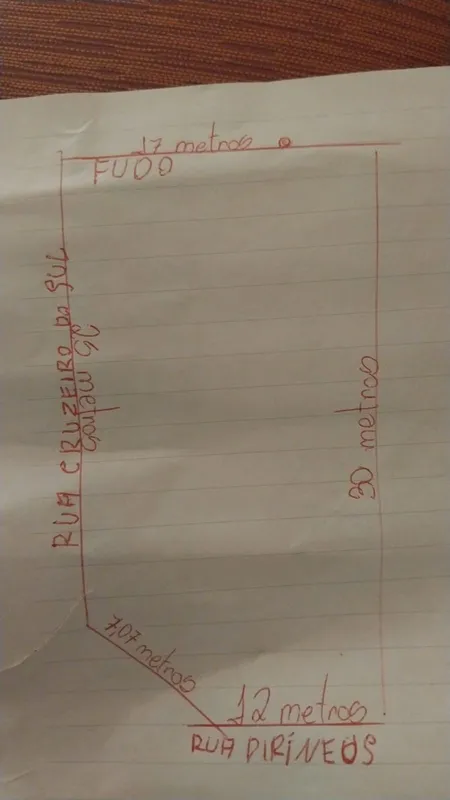 17 metros
FUDO
RUA CRUZEIRO DO SUL
25 metros
30 metros
7,07 metros
12 metros
RUA PIRÍNEUS